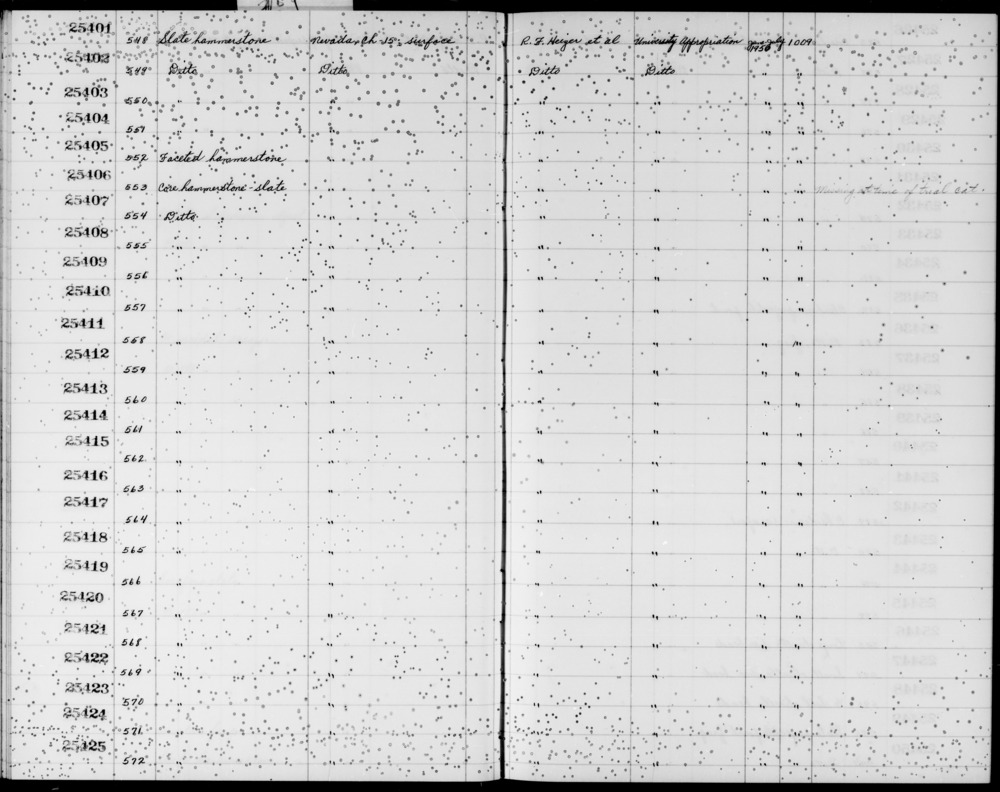 25401 548 Slate hammerstone Nevada, Ch-15- surface R. F. Heizer et al University Appropriation July 1950 1009
25402 549 Ditto Ditto Ditto Ditto " "
25403 550 " " " " " "
25404 551 " " " " " "
25405 552 Faceted hammerstone " " " " "
25406 553 Core hammerstone - slate " " " " " Missing at time of trial cat.
25407 554 Ditto " " " " "
25408 555 " " " " " "
25409 556 " " " " " "
25410 557 " " " " " "
25411 558 " " " " " "
25412 559 " " " " " "
25413 560 " " " " " "
25414 561 " " " " " "
25415 562 " " " " " "
25416 563 " " " " " "
25417 564 " " " " " "
25418 565 " " " " " "
25419 566 " " " " " "
25420 567 " " " " " "
25421 568 " " " " " "
25422 569 " " " " " "
25423 570 " " " " " "
25424 571 " " " " " "
25425 572 " " " " " "